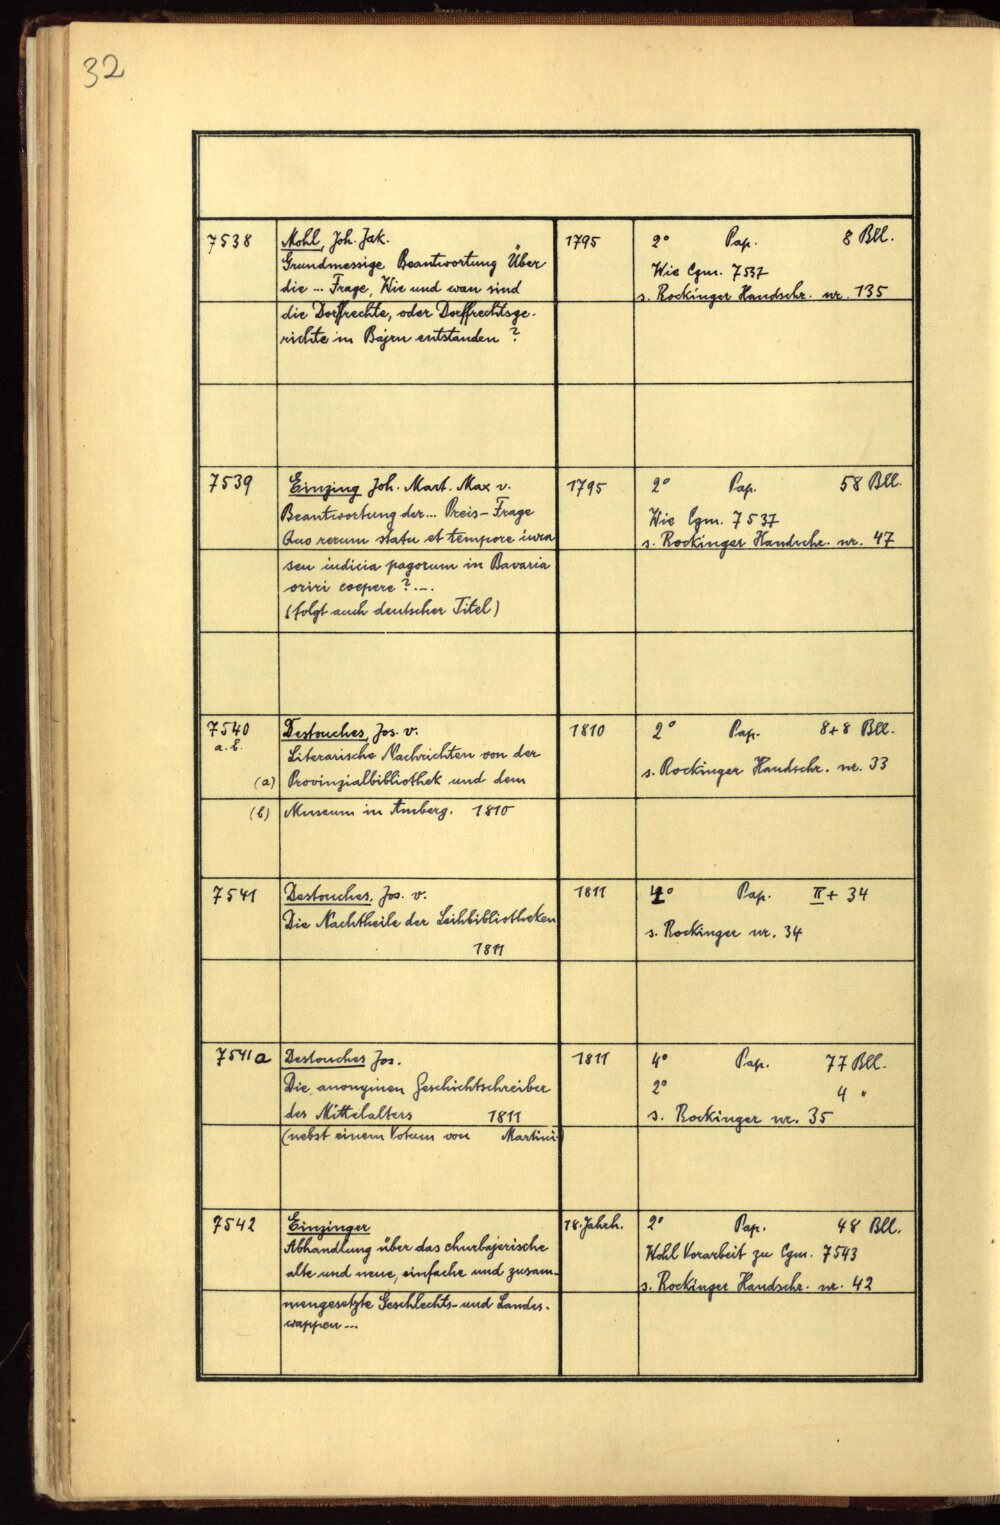 32
7538 Mohl, Joh. Jak. 1795 2° Pap. 8 Bll.
Grundmessige Beantwortung Über
die ... Frage, Wie und wan sind Wie Cgm. 7537
die Dorfrechte, oder Dorffrechtsge- s. Rockinger Handschr. nr. 135
richte in Bajrn entstanden ?
7539 Einzing Joh. Mart. Max v. 1795 2° Pap. 58 Bll.
Beantwortung der... Preis-Frage Wie Cgm. 7537
Quo rerum statu et tempore iura s. Rockinger Handschr. nr. 47
seu iudicia pagorum in Bavaria
oriri coepere ? ...
(folgt auch deutscher Titel)
7540 Destouches, Jos. v. 1810 2° Pap. 8+8 Bll.
a. b. Literarische Nachrichten von der
(a) Provinzialbibliothek und dem s. Rockinger Handschr. nr. 33
(b) Museum in Amberg. 1810
7541 Destouches, Jos. v. 1811 4° Pap. II + 34
Die Nachtheile der Leihbibliotheken s. Rockinger nr. 34
1811
7541a Destouches Jos. 1811 4° Pap. 77 Bll.
Die anonymen Geschichtschreiber 2° 4 "
des Mittelalters 1811 s. Rockinger nr. 35
(nebst einem Votum von Martini)
7542 Einzinger 18. Jahrh. 2° Pap. 48 Bll.
Abhandlung über das churbajerische Wohl Vorarbeit zu Cgm. 7543
alte und neue, einfache und zusam- s. Rockinger Handschr. nr. 42
mengesetzte Geschlechts- und Landes-
wappen ...